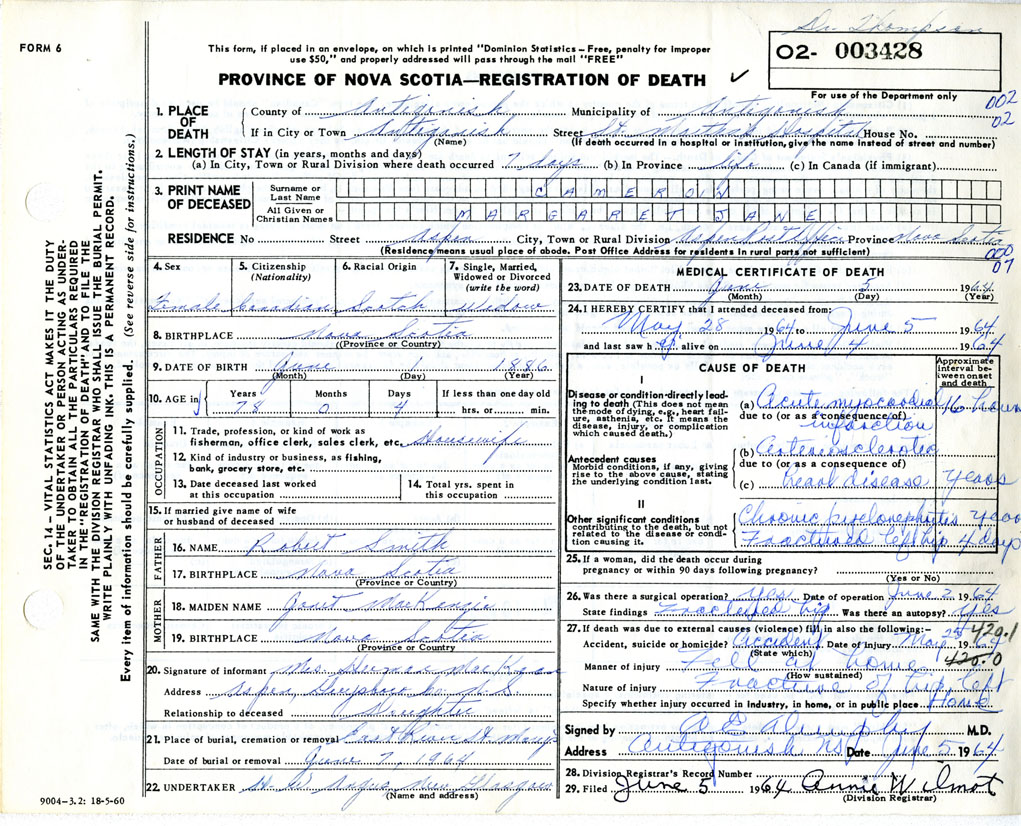 Dr. Thompson
FORM 6
This form, if placed in an envelope, on which is printed "Dominion Statistics – Free, penalty for improper
use $50," and properly addressed will pass through the mail "FREE"
O2- 003428
PROVINCE OF NOVA SCOTIA—REGISTRATION OF DEATH ✓
For use of the Department only
002
02
1. PLACE OF DEATH
County of Antigonish Municipality of Antigonish
If in City or Town Antigonish Street St. Martha's Hospital House No.
(Name) (If death occurred in a hospital or institution, give the name instead of street and number)
2. LENGTH OF STAY (in years, months and days)
(a) In City, Town or Rural Division where death occurred 7 days (b) In Province life (c) In Canada (if immigrant)
3. PRINT NAME OF DECEASED
Surname or Last Name CAMERON
All Given or Christian Names MARGARET JANE
RESIDENCE No Street Aspen City, Town or Rural Division Aspen Post Office Province Nova Scotia
(Residence means usual place of abode. Post Office Address for residents in rural parts not sufficient)
000
07
4. Sex
Female
5. Citizenship (Nationality)
Canadian
6. Racial Origin
Scotch
7. Single, Married, Widowed or Divorced (write the word)
Widow
8. BIRTHPLACE Nova Scotia
(Province or Country)
9. DATE OF BIRTH June 1 1886
(Month) (Day) (Year)
10. AGE in
Years Months Days If less than one day old
78 0 4 hrs. or min.
OCCUPATION
11. Trade, profession, or kind of work as
fisherman, office clerk, sales clerk, etc. Housewife
12. Kind of industry or business, as fishing,
bank, grocery store, etc.
13. Date deceased last worked
at this occupation
14. Total yrs. spent in
this occupation
15. If married give name of wife
or husband of deceased
FATHER
16. NAME Robert Smith
17. BIRTHPLACE Nova Scotia
(Province or Country)
MOTHER
18. MAIDEN NAME Janet MacKenzie
19. BIRTHPLACE Nova Scotia
(Province or Country)
20. Signature of informant Mrs
Address Aspen, Co. N.S.
Relationship to deceased Daughter
21. Place of burial, cremation or removal East River St. Mary's
Date of burial or removal June 7, 1964
22. UNDERTAKER New Glasgow
(Name and address)
9004–3.2: 18-5-60
MEDICAL CERTIFICATE OF DEATH
23. DATE OF DEATH June 5 1964
(Month) (Day) (Year)
24. I HEREBY CERTIFY that I attended deceased from:
May 28 1964 to June 5 1964
and last saw her alive on June 4 1964
CAUSE OF DEATH
Approximate interval between onset and death
I
Disease or condition directly leading to death (This does not mean
the mode of dying, e.g., heart failure, asthenia, etc. It means the
disease, injury, or complication
which caused death.)
(a) Acute myocardial 16 hours
due to (or as a consequence of)
infarction
Antecedent causes
Morbid conditions, if any, giving
rise to the above cause, stating
the underlying condition last.
(b) Arteriosclerotic
due to (or as a consequence of)
(c) heart disease years
II
Other significant conditions
contributing to the death, but not
related to the disease or condition causing it.
Chronic pyelonephritis years
Fractured left hip 4 days
25. If a woman, did the death occur during
pregnancy or within 90 days following pregnancy?
(Yes or No)
26. Was there a surgical operation? Yes. Date of operation June 2 1964
State findings Fractured hip Was there an autopsy? Yes
27. If death was due to external causes (violence) fill in also the following:–
420.1
Accident, suicide or homicide? Accident Date of injury May 1964
(State which)
420.0
Manner of injury Fell at home
(How sustained)
Nature of injury Fracture of hip, left
Specify whether injury occurred in industry, in home, or in public place. Home
Signed by M.D.
Address Antigonish NS Date June 5 1964
28. Division Registrar's Record Number
29. Filed June 5 1964 Annie Wilmot
(Division Registrar)
SEC. 14 – VITAL STATISTICS ACT MAKES IT THE DUTY
OF THE UNDERTAKER OR PERSON ACTING AS UNDERTAKER TO OBTAIN ALL THE PARTICULARS REQUIRED
IN THE "REGISTRATION OF DEATH" AND TO FILE THE
SAME WITH THE DIVISION REGISTRAR WHO SHALL ISSUE THE BURIAL PERMIT.
WRITE PLAINLY WITH UNFADING INK. THIS IS A PERMANENT RECORD.
Every item of information should be carefully supplied. (See reverse side for instructions.)